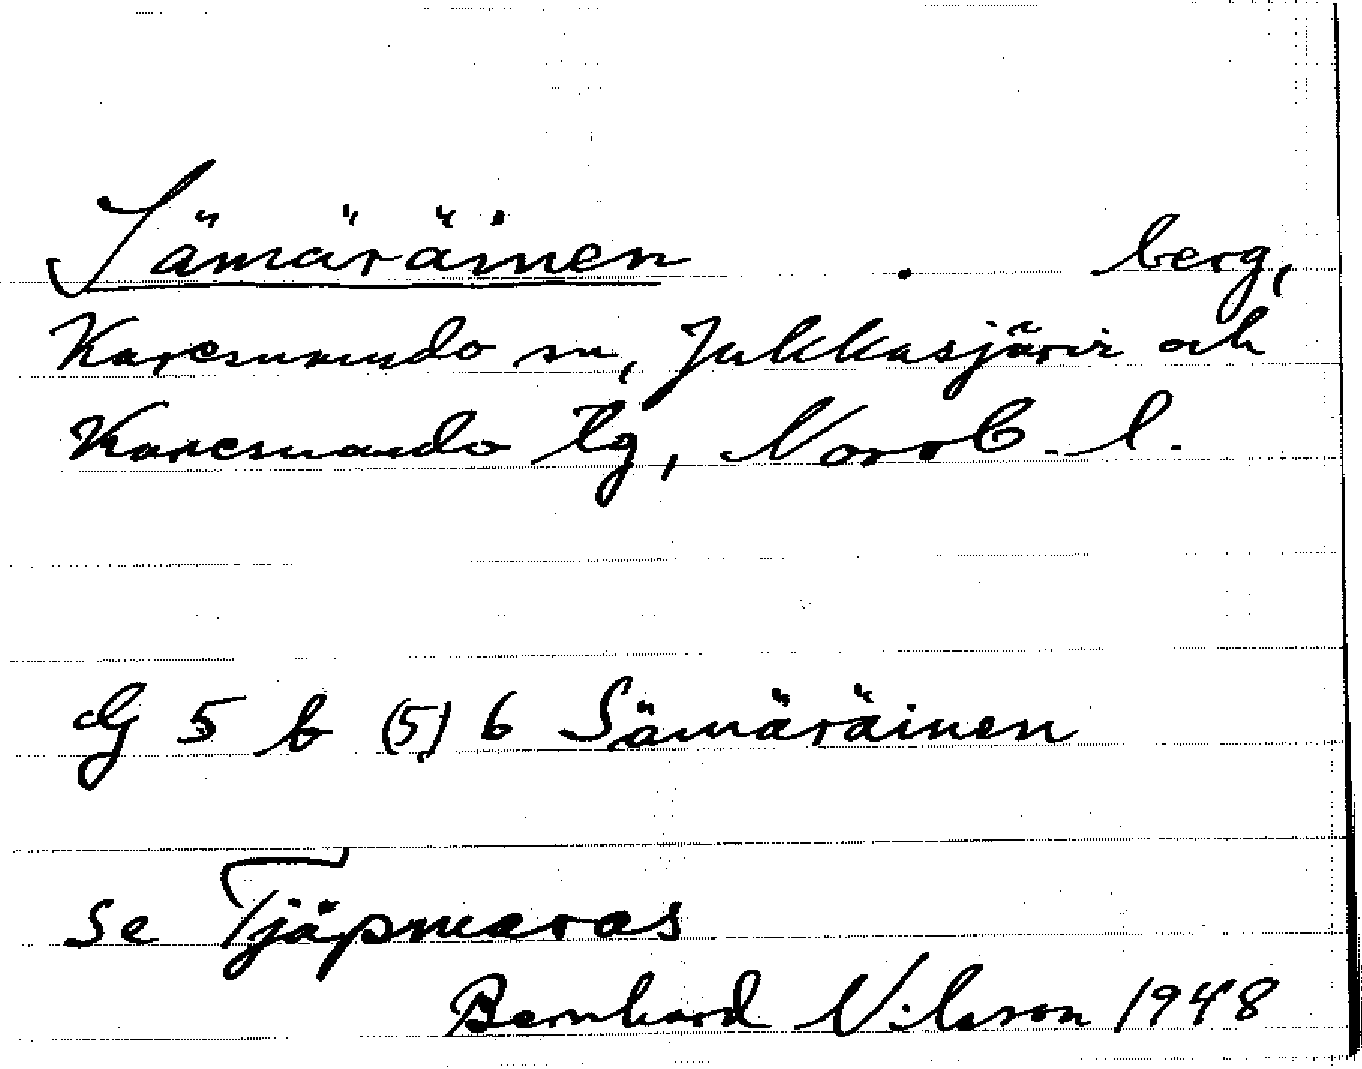 Sämäräinen . berg,
Karesuando sn, Jukkasjärvi och
Karesuando tg, Norrb. l.
G 5 b (5) 6 Sämäräinen
se Tjäpmaras
Bernhard Nilsson 1948